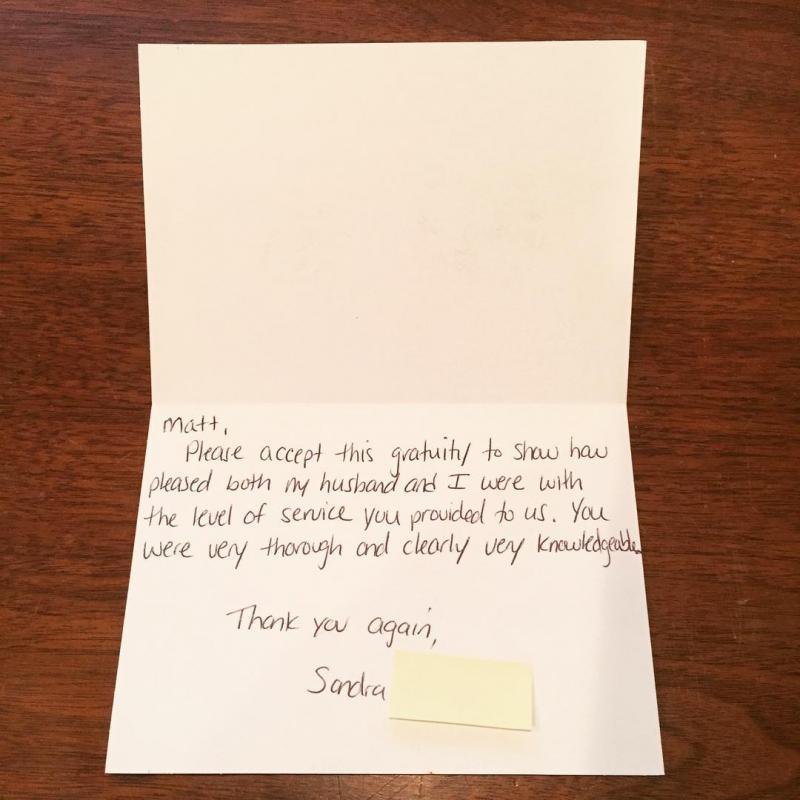 Matt,
Please accept this gratuity to show how
pleased both my husband and I were with
the level of service you provided to us. You
were very thorough and clearly very knowledgeable.
Thank you again,
Sandra